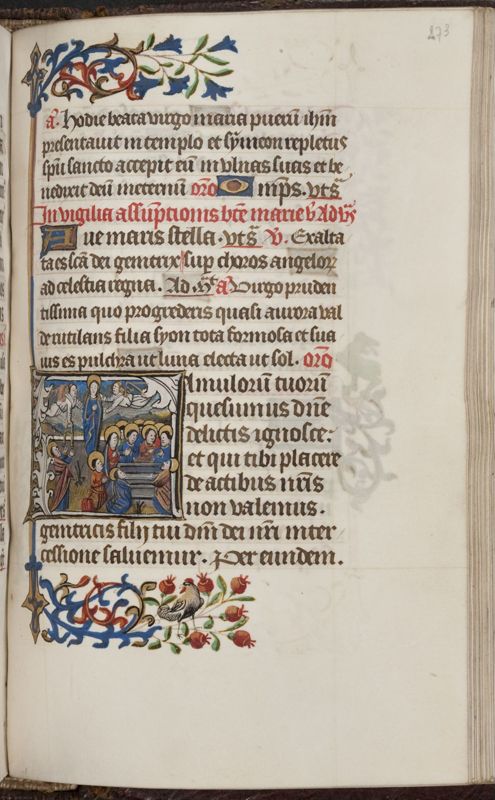 273
a. Hodie beata virgo maria pueru ihm
presentauit in templo et symeon repletus
spu sancto accepit eu in vlnas suas et be
nedixit deu ineternu oro Omps. vts
In vigilia assuptionis bte marie v Ad vs
Aue maris stella. vts v. Exalta
ta es sca dei genitrix sup choros angelor
ad celestia regna. Ad mt a Virgo pruden
tissima quo progrederis quasi aurora val
de rutilans filia syon tota formosa et sua
uis es pulchra ut luna electa ut sol. oro
Famuloru tuoru
quesumus dne
delictis ignosce:
et qui tibi placere
de actibus nris
non valemus.
genitricis filij tui dm dei nri inter
cessione saluemur. Per eundem.